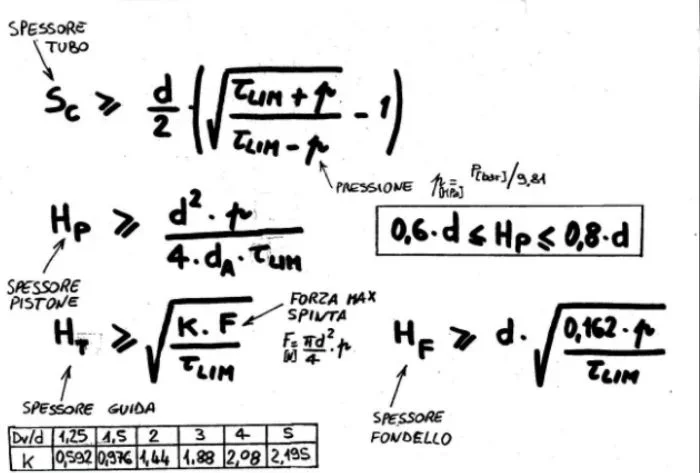 SPESSORE
TUBO
Sc ⩾ d/2 · (√((τLIM + p)/(τLIM - p)) - 1)
PRESSIONE p[MPa] = P[bar]/9,81
Hp ⩾ (d² · p)/(4 · dA · τLIM)
0,6 · d ≤ Hp ≤ 0,8 · d
SPESSORE
PISTONE
HT ⩾ √((K . F)/τLIM)
FORZA MAX
SPINTA
F[N] = πd²/4 · p
HF ⩾ d · √((0,162 · p)/τLIM)
SPESSORE GUIDA
SPESSORE
FONDELLO
Dv/d 1,25 1,5 2 3 4 5
K 0,592 0,976 1,44 1,88 2,08 2,195